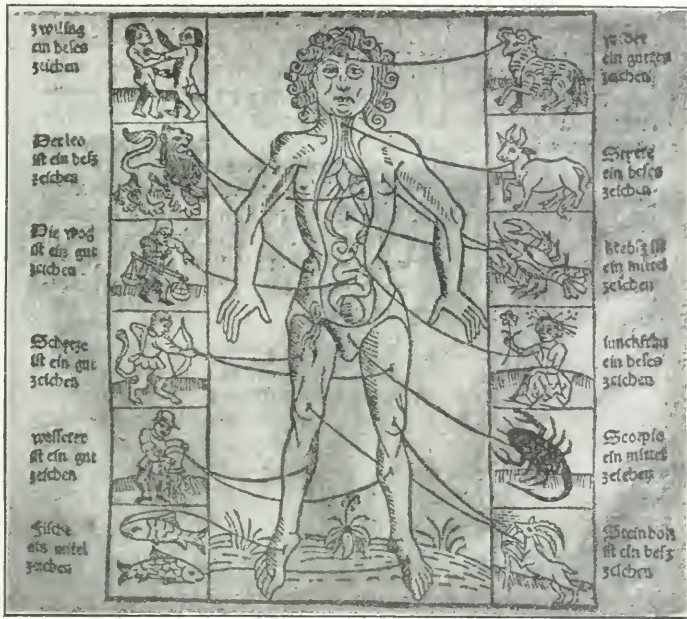 zwiling
ein beses
zeichen
Der leo
ist ein besz
zeichen
Die wog
ist ein gut
zeichen
Schucze
ist ein gut
zeichen
wasserer
ist ein gut
zeichen
Fische
ein mitel
zeichen
wider
ein gutzes
zeichen
ein beses
zeichen
krebsz ist
ein mittel
zeichen
iunckfraw
ein beses
zeichen
Scorpio
ein mittel
zeichen
Steinbock
ist ein besz
zeichen